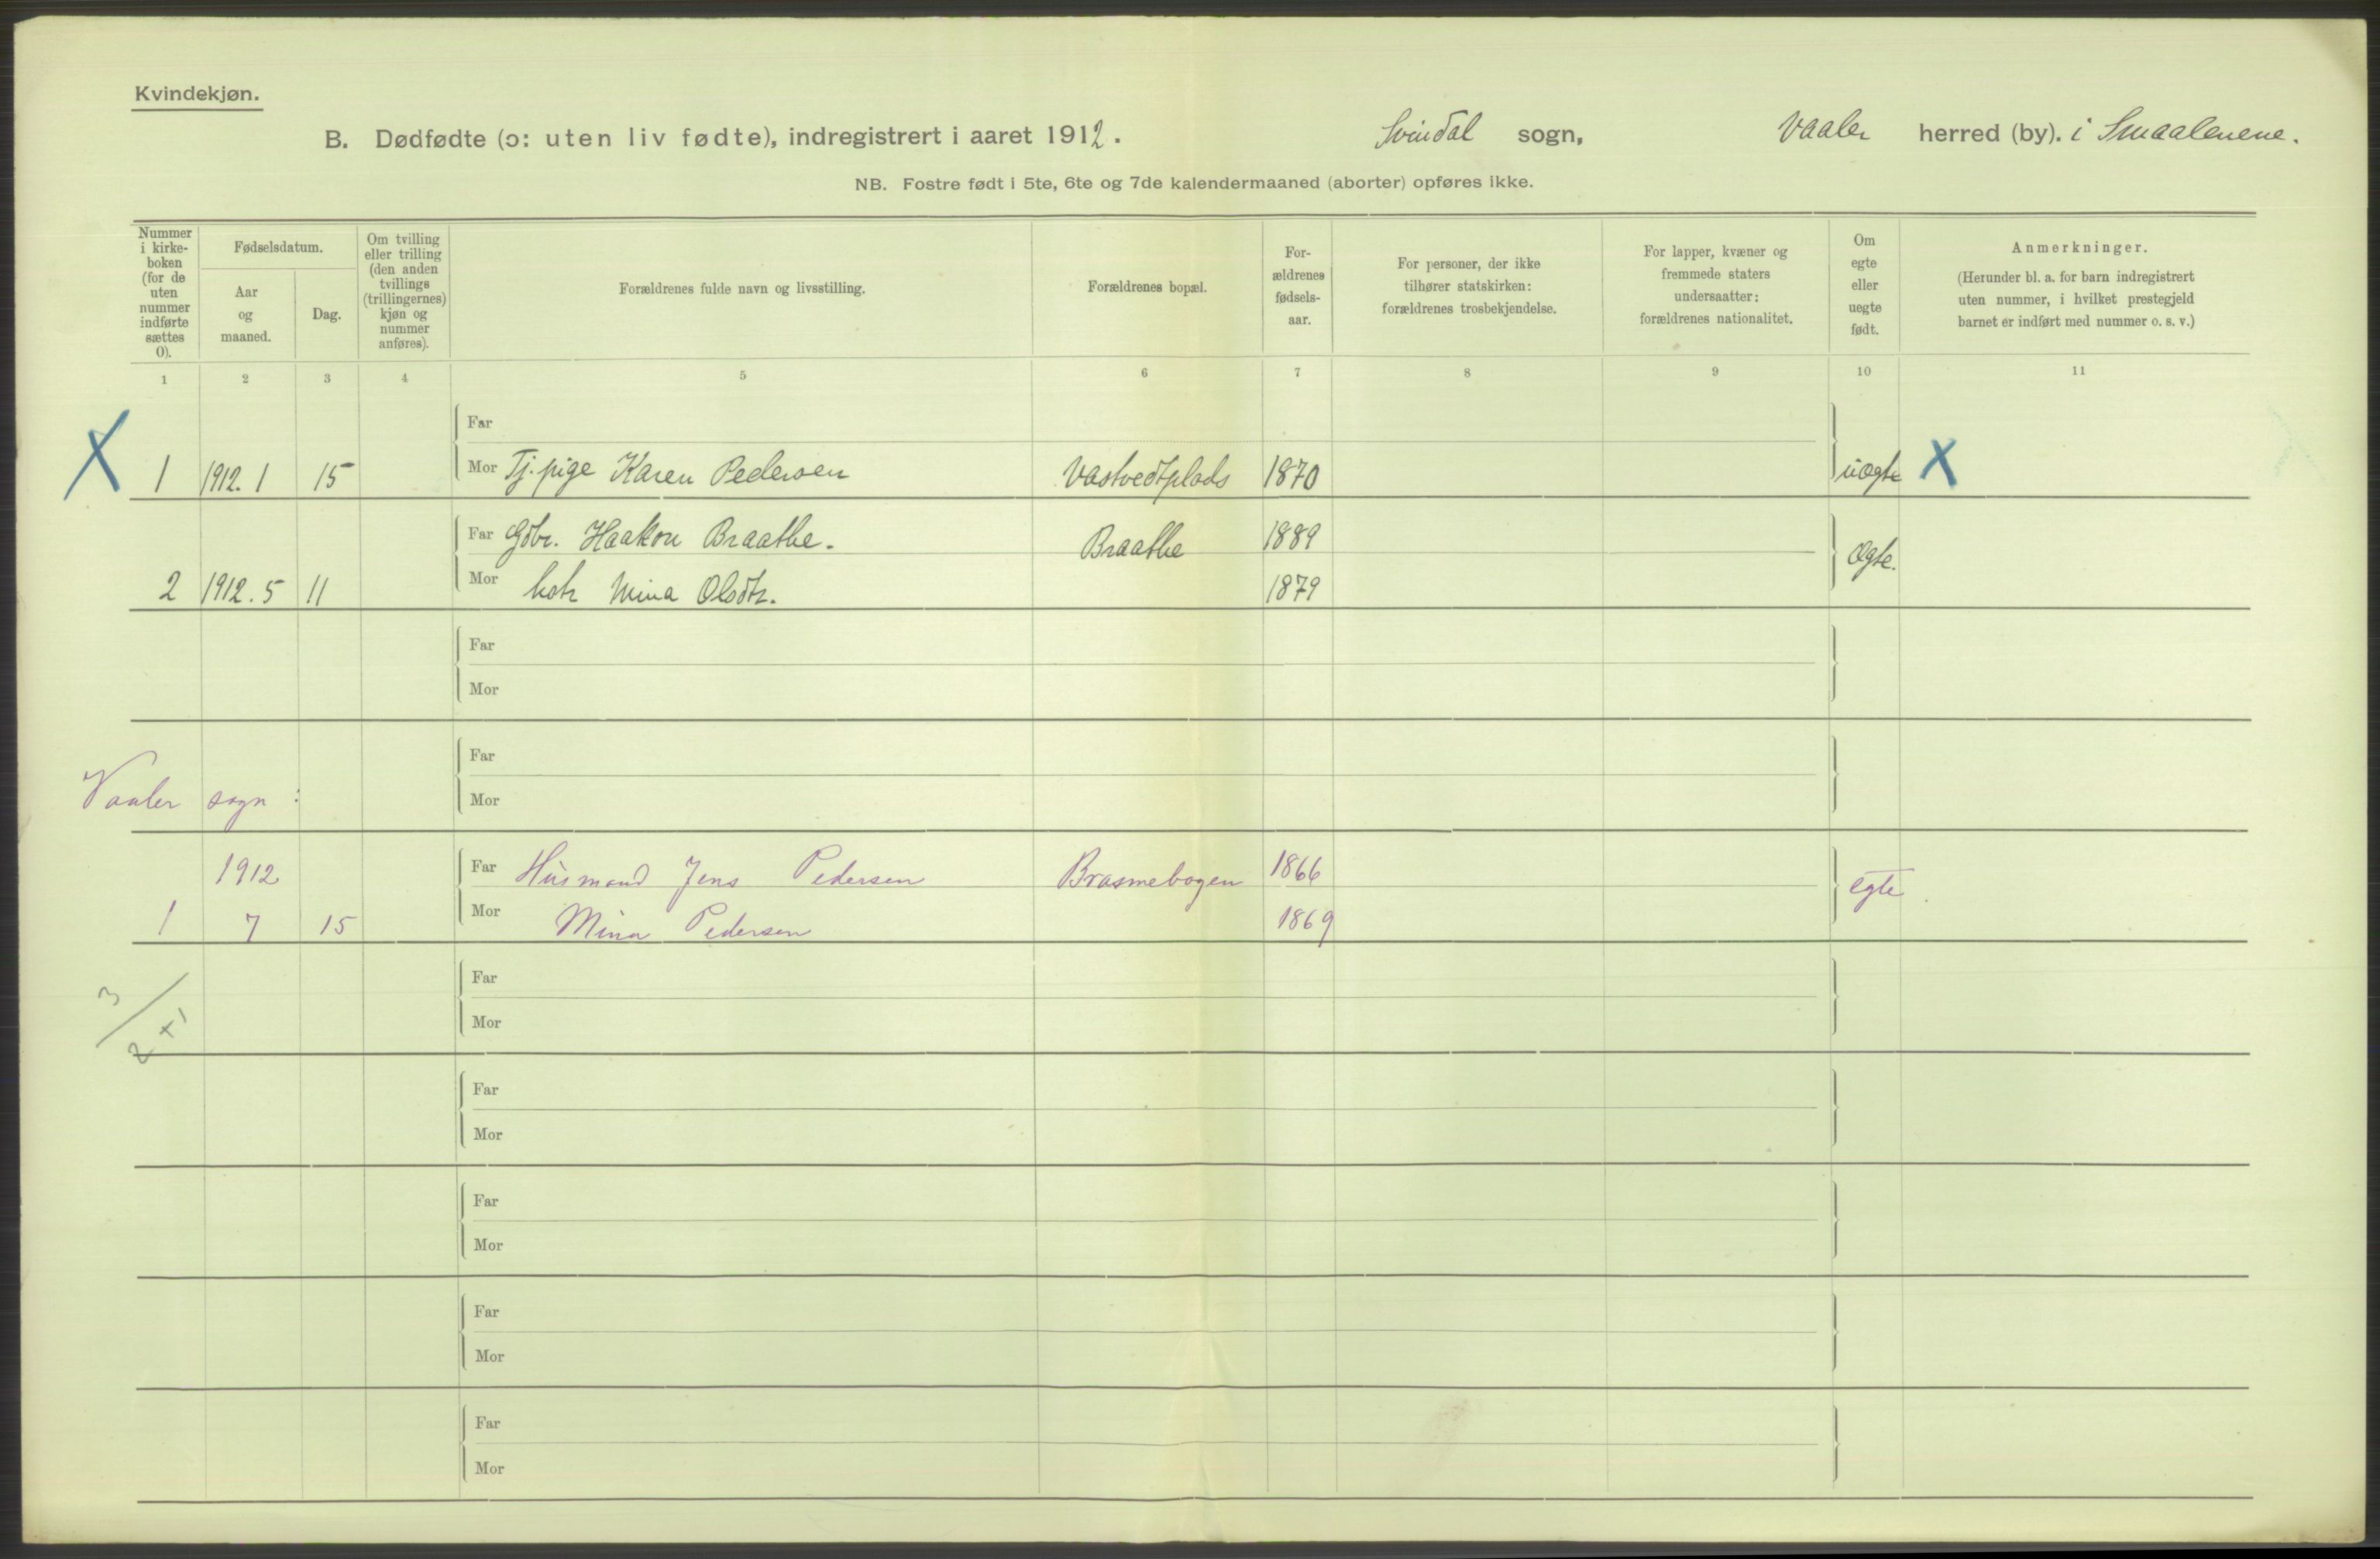 Kvindekjøn.
B. Dødfødte (ɔ: uten liv fødte), indregistrert i aaret 1912. Svindal sogn, Vaaler herred (by). i Smaalenene.
NB. Fostre født i 5te, 6te og 7de kalendermaaned (aborter) opføres ikke.
Nummer
i kirke-
boken
(for de
uten
nummer
indførte
sættes
0).
Fødselsdatum.
Aar
og
maaned.
Dag.
Om tvilling
eller trilling
(den anden
tvillings
(trillingernes)
kjøn og
nummer
anføres).
Forældrenes fulde navn og livsstilling.
Forældrenes bopæl.
For-
ældrenes
fødsels-
aar.
For personer, der ikke
tilhører statskirken:
forældrenes trosbekjendelse.
For lapper, kvæner og
fremmede staters
undersaatter:
forældrenes nationalitet.
Om
egte
eller
uegte
født.
Anmerkninger.
(Herunder bl. a. for barn indregistrert
uten nummer, i hvilket prestegjeld
barnet er indført med nummer o. s. v.)
1 2 3 4 5 6 7 8 9 10 11
Far
X 1 1912. 1 15 Mor Tj. pige Karen Pedersen Vastvedtplads 1870 uægte X
Far Gbr. Haakon Braathe. Braathe 1889 Ægte.
2 1912. 5 11 Mor Mina Olsdtr. 1879
Far
Mor
Far
Vaaler sogn : Mor
1912 Far Husmand Jens Pedersen Brasmebogen 1866 egte
1 7 15 Mor Mina Pedersen 1869
3
2 + 1
Far
Mor
Far
Mor
Far
Mor
Far
Mor
Far
Mor